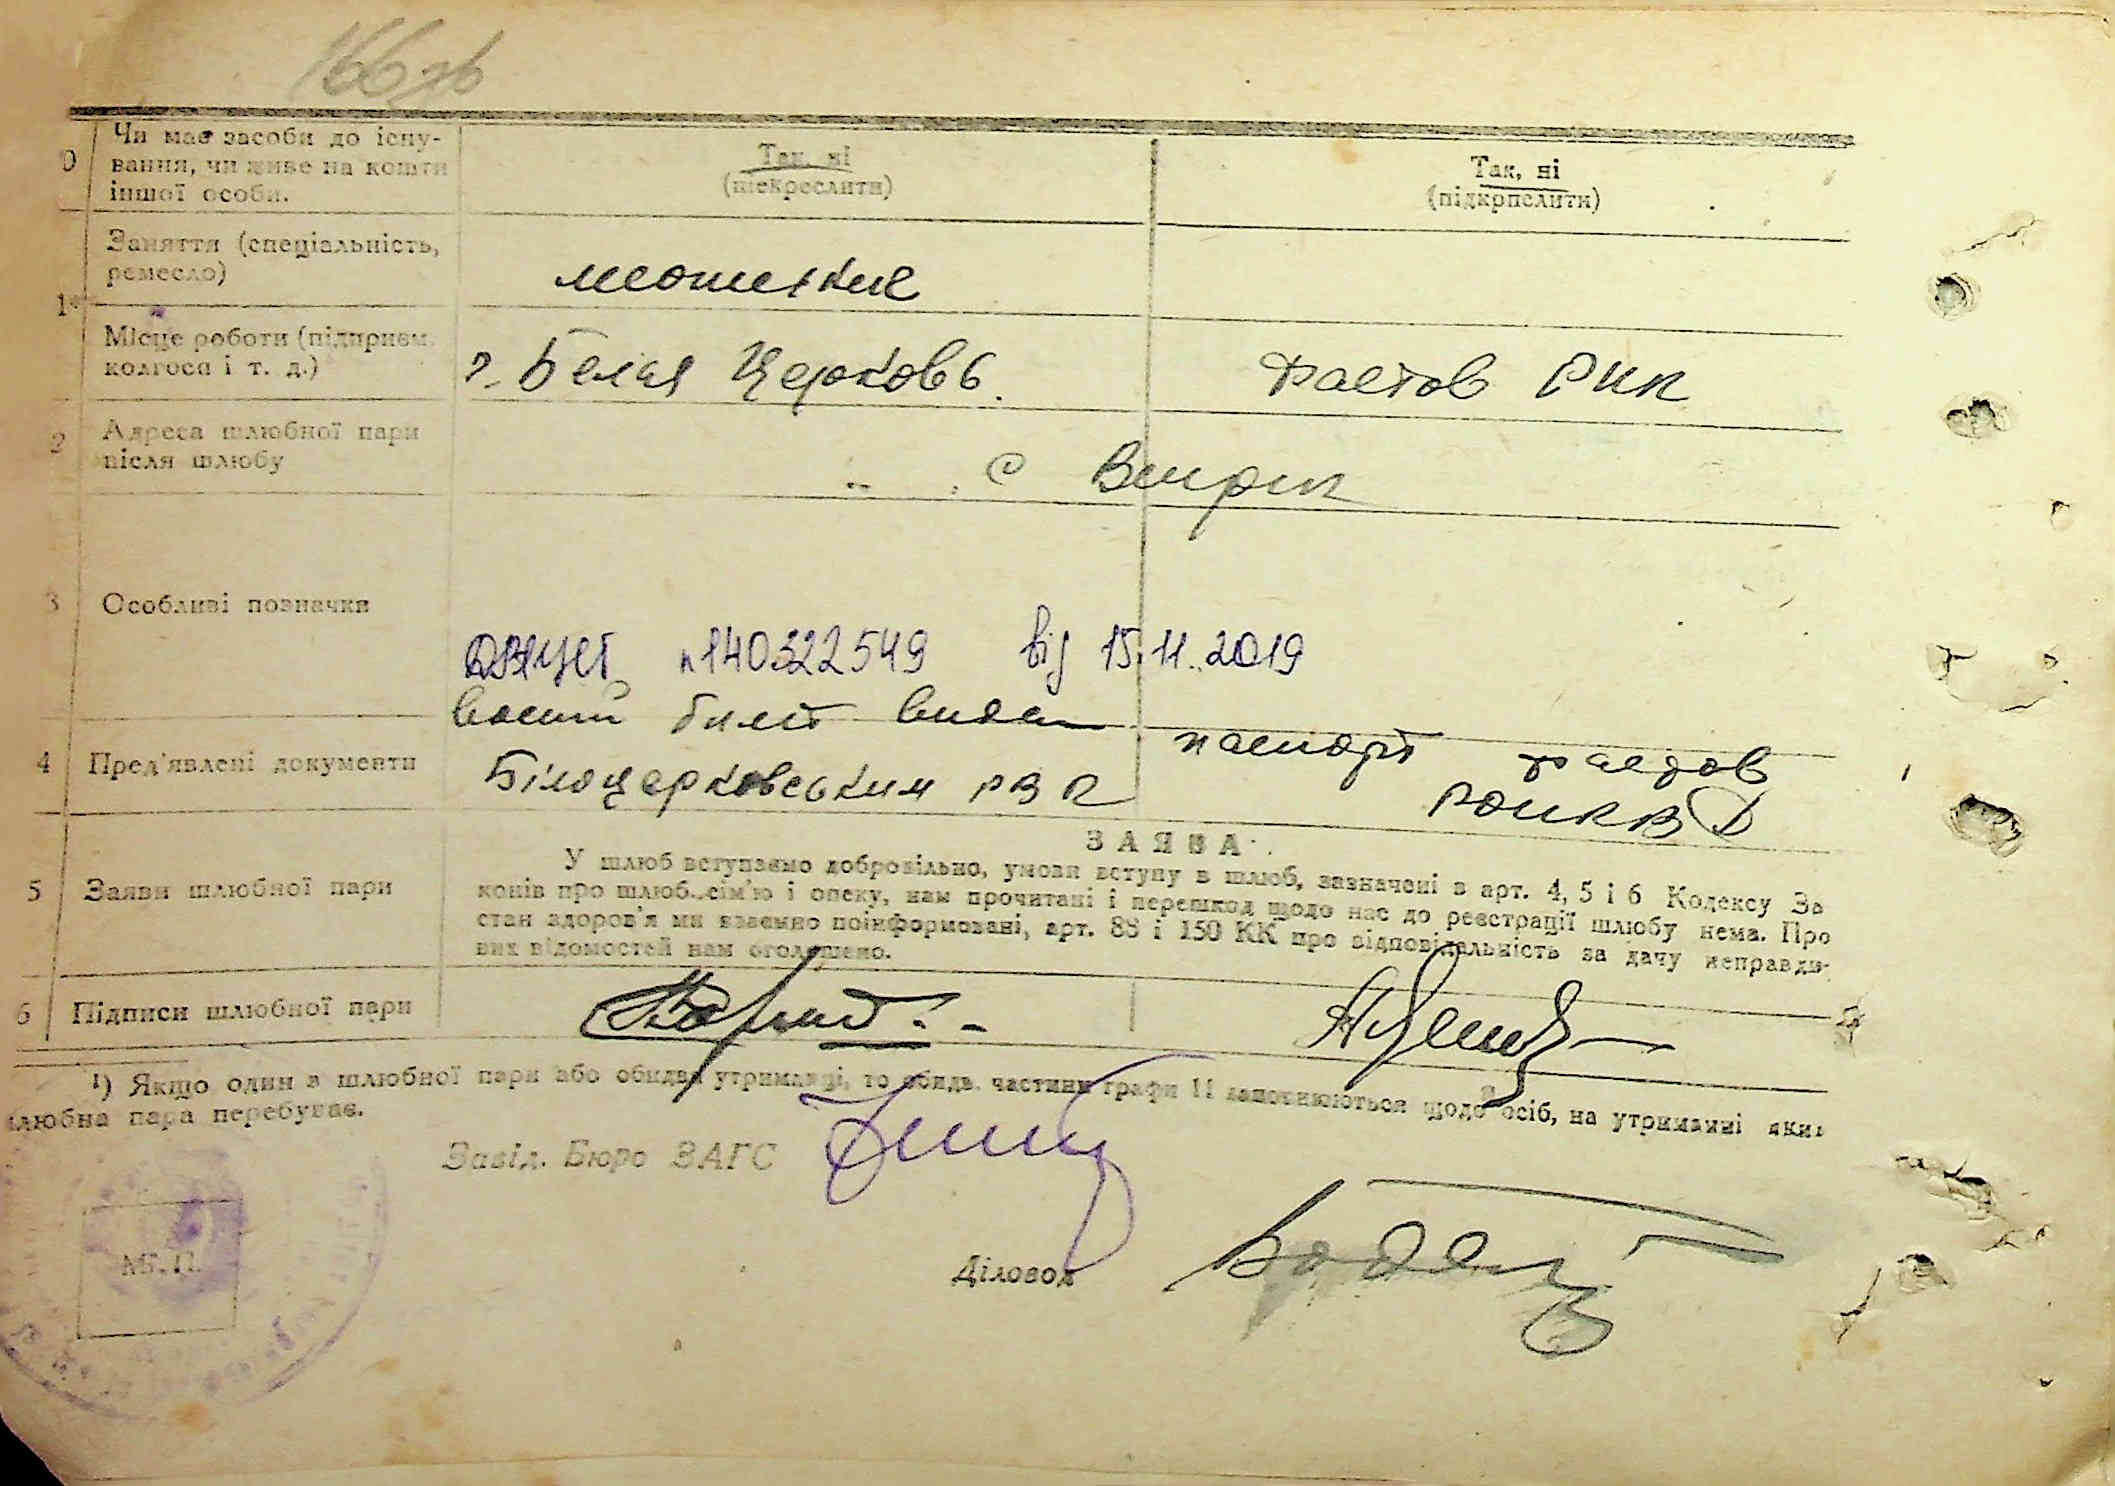 166 зв
0 Чи має засоби до існу-
вання, чи живе на кошти
іншої особи.
Так, ні
(підкреслити)
Так, ні
(підкреслити)
Заняття (спеціальність,
ремесло)
Місце роботи (підприєм.
колгосп і т. д.)
г. Белая Церковь.
Фастов РИК
2 Адреса шлюбної пари
після шлюбу
с
3 Особливі позначки
№140322549 від 15.11.2019
4 Пред'явлені документи
билет видан
Білоцерковським РВК
паспорт Фастов
РОНКВД
ЗАЯВА.
5 Заяви шлюбної пари
У шлюб вступаємо добровільно, умови вступу в шлюб, зазначені в арт. 4, 5 і 6 Кодексу За
конів про шлюб, сім'ю і опеку, нам прочитані і перешкод щодо нас до реєстрації шлюбу нема. Про
стан здоров'я ми взаємно поінформовані, арт. 88 і 150 КК про відповідальність за дачу неправди-
вих відомостей нам оголошено.
6 Підписи шлюбної пари
¹) Якщо один з шлюбної пари або обидва утриманці, то обидві частини графи 11 заповнюються щодо осіб, на утриманні яких
шлюбна пара перебуває.
Завід. Бюро ЗАГС
М. П.
Діловод